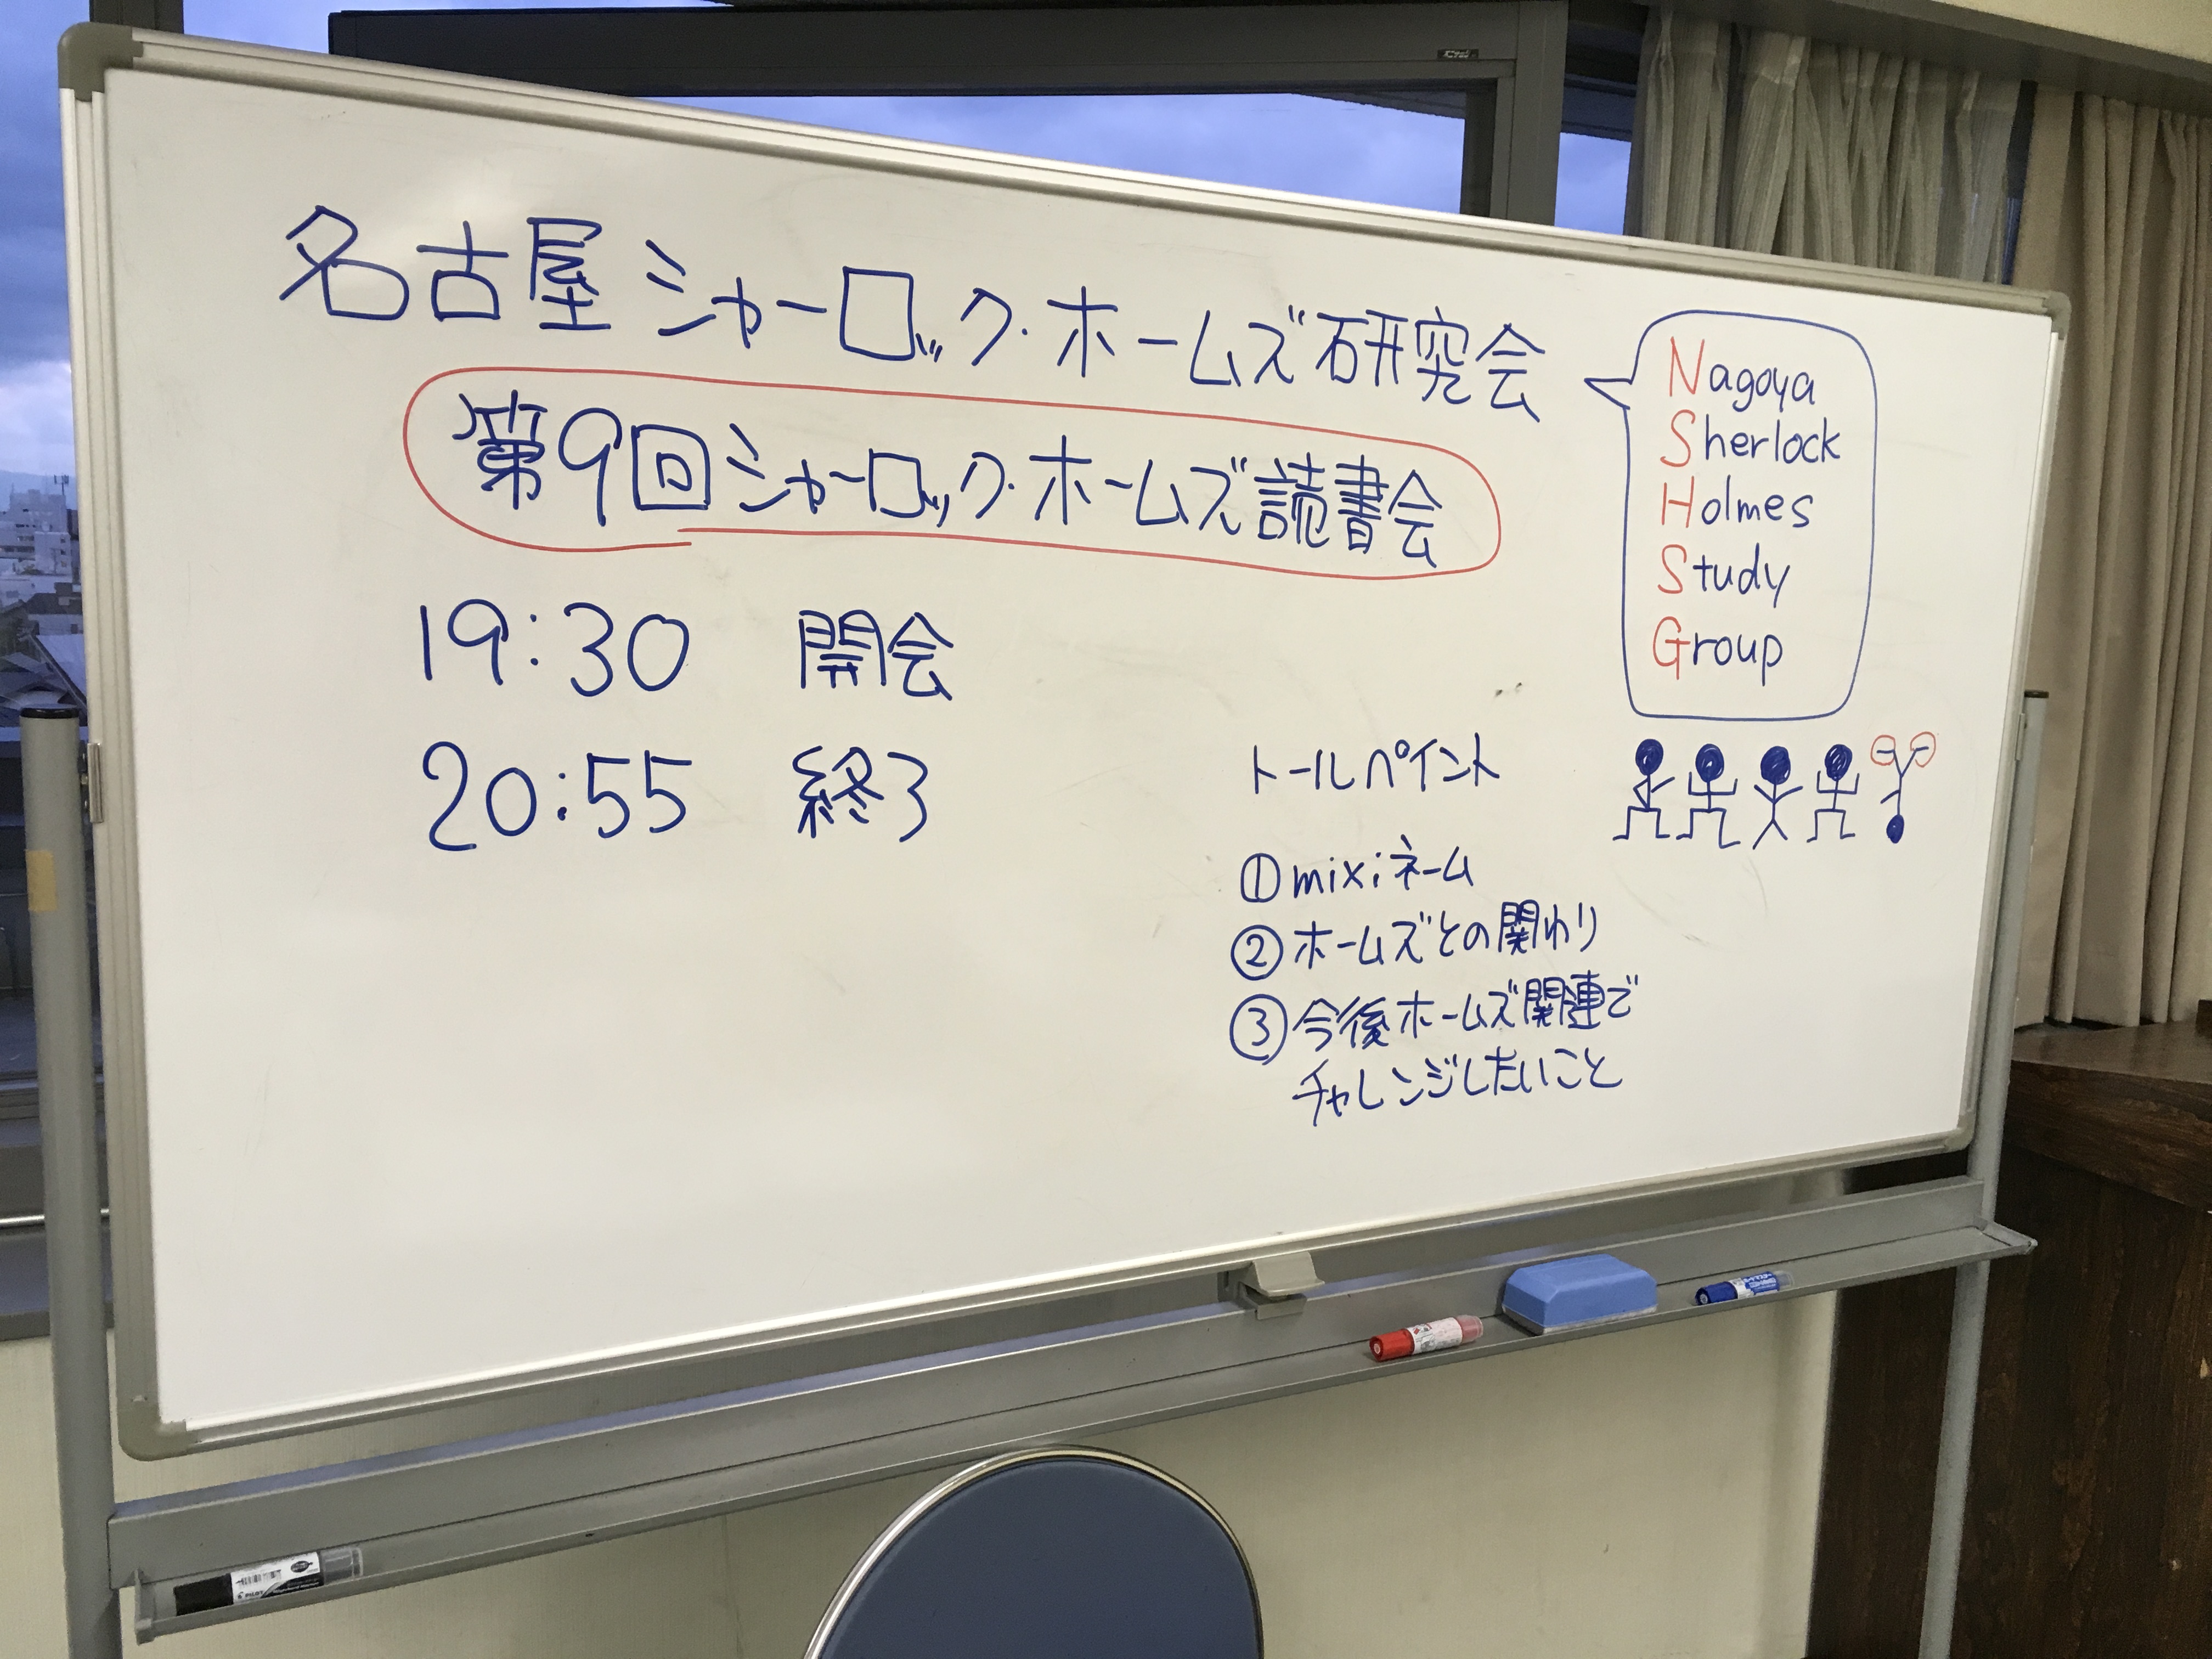 名古屋シャーロック・ホームズ研究会
第9回シャーロック・ホームズ読書会
19:30 開会
20:55 終了
Nagoya
Sherlock
Holmes
Study
Group
トールペイント
①mixiネーム
②ホームズとの関わり
③今後ホームズ関連で
チャレンジしたいこと
PILOT